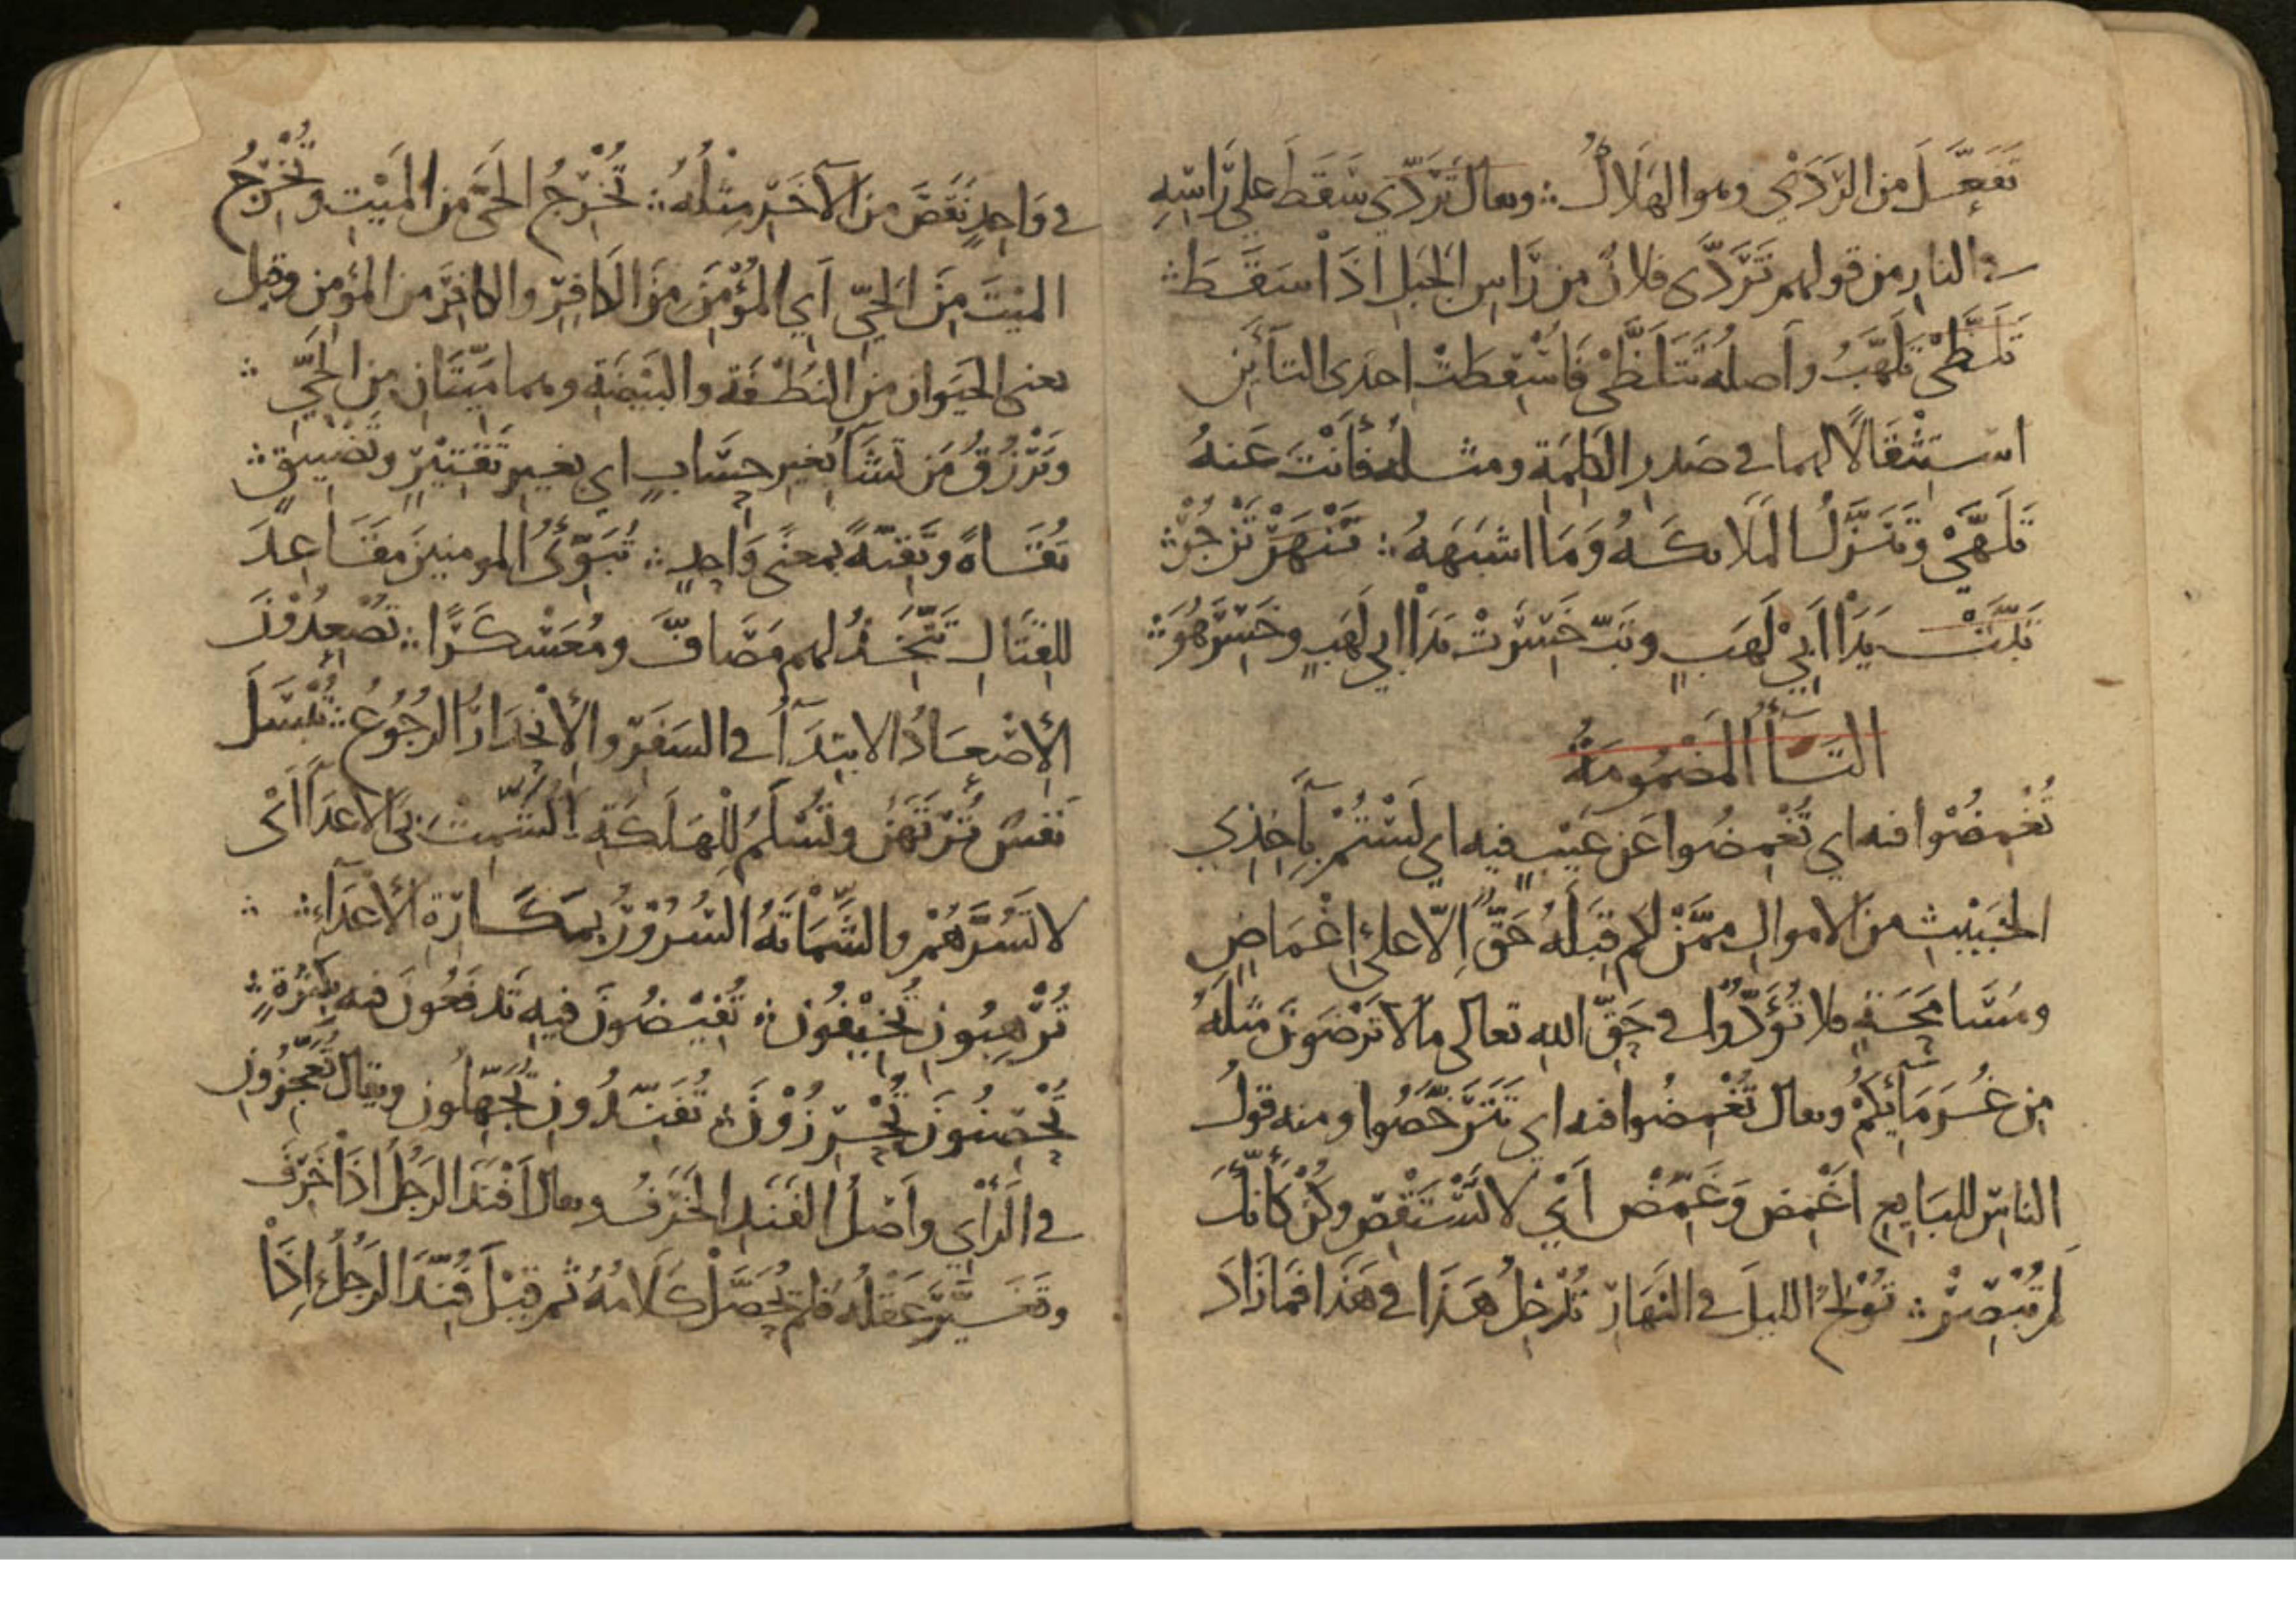 تَفَعَّلَ من الرَدَى وهو الهَلَاكُ ؞ ويقال تَرَدَّي سَقَطَ علي رَاسِهِ
في النارِ من قولهم تَرَدَّى فلانٌ من رَاسِ الجَبَلِ اذَا سَقَطَ ؞
تَلَظَّىْ تَلَهَّبُ وأصله تَتَلَظَّىْ فَاسْقِطَتْ احدى التائَين
استِثْقَالًا لهما في صَدرِ الكَلِمَةِ ومثله فَأَنْتَ عَنهُ
تَلَهَّىْ وَتَنَزَّلُ المَلَائكَةُ وَمَا اشبَهَهُ ؞ تَنْهَرْ تَزْجُرْ ؞
تَبَّتْ يَدَا ابِيْ لَهَبٍ وتَبّ خَسِرَتْ يَدَا ابي لَهَبٍ وخَسِرَ هُوَ ؞
التَاءُ المَضْمُومَةُ
تُغْمِضُوْا فيه اي تُغْمِضُوا عَن عَيْبٍ فيه اي لَسْتُمْ بِآخِذِي
الخَبِيْثِ من الاموالِ مِمَّنْ لكم قِبَلَهُ حَقٌّ اِلّا على اِغْمَاضٍ
ومُسَامَحَةٍ فلا تُؤَدُّوا في حَقِّ اللهِ تعالى ما لا تَرْضَوْنَ مثلَهُ
مِن غُرَمَائِكُمْ ويقال تُغْمِضُوا فيه اي تَتَرَخَّصُوا ومنه قولُ
الناسِ للبَايعِ اغْمِض وَغَمِّضْ أَيْ لا تَسْتَقْصِ وكُنْ كَأَنَّكَ
لم تُبْصِرْ ؞ تُوْلِجُ الليلَ في النَهَارِ تُدْخِلُ هَذَا في هَذَا فمَا زَادَ
في وَاحِدٍ نَقَصَ من الآخَرِ مِثْلُهُ ؞ تُخْرِجُ الحَيَّ من المَيْتِ وتُخْرِجُ
المَيْتَ مِنَ الحَيِّ اَيِ المُؤْمِنَ مِنَ الكَافِرِ والكافِرَ من المؤمِن وقيل
يعنى الحَيَوانَ من النُطْفَةِ والبَيْضَةِ وهما مَيِّتَانِ من الحَيِّ ؞
وَتَرْزُقُ مَن تَشَا بغَيرِ حِسَابٍ اي بغيرِ تَقْتِيْرٍ وتَضْيِيقٍ ؞
تُقَاةً وتَقِيَّةً بمعنًى وَاحِدٍ ؞ تُبَوِّئُ المومنِينَ مَقَاعِدَ
للقِتَالِ تَتَّخِذُ لهم مَصَافَّ ومُعَسْكَرًا ؞ تُصْعِدُوْنَ
الاِصْعَادُ الابتِدَآءُ في السَفَرِ والاِنْحِدَارُ الرُجُوعُ ؞ تُبْسَلَ
نَفسٌ تُرْتَهَنُ وتُسْلَمُ لِلْهَلَكَةِ تُشْمِتْ بىَ الاعدَآءَ اىْ
لا تَسُرَّهُمْ والشَّمَاتَةُ السُرُوْرُ بمَكَارِهِ الأعْدَآءِ ؞
تُرْهِبُونِ تُخِيْفُونَ ؞ تُفِيْضُونَ فيهِ تَدفَعُونَ فيه بكَثرَةٍ ؞
تُحْصِنُونَ تُحْرِزُوْنَ ؞ تُفَنِّدُونِ تُجَهِّلُونِ ويقال تُعَجِّزُونِ
في الَرَأْيِ واَصْلُ الفَنَدِ الخَرَفُ ويقال اَفْنَدَ الرَجُلُ اذَا خَرِفَ
وتَغَيَّرَ عَقْلُهُ فلم يُحَصَّلْ كَلَامُهُ ثم قِيْلَ فُنِّدَ الرَجُلُ اِذَا